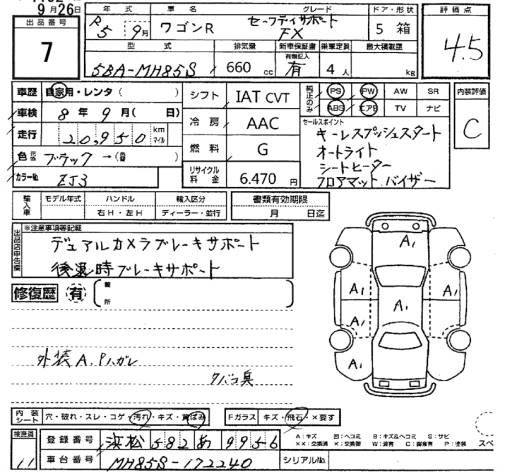 9月26日
出品番号 年式 車名 グレード ドア・形状 評価点
7 R5 9月 ワゴンR セーフティサポート FX 5 箱 4.5
型式 排気量 新車保証書 乗車定員 最大積載量
5BA-MH85S 660cc 有 4人 kg
車歴 自家用・レンタ( ) シフト IAT CVT 純正のみ PS PW AW SR 内装評価
車検 8年9月( 日) 冷房 AAC ABS エアB TV ナビ C
走行 20,950 km マイル 燃料 G セールスポイント
キーレスプッシュスタート
オートライト
シートヒーター
フロアマット バイザー
色 ブラック→( )
カラーNo. ZJ3 リサイクル料金 6.470円
輸入車 モデル年式 ハンドル 輸入区分 書類有効期限
右H・左H ディーラー・並行 月 日迄
※注意事項等記載
デュアルカメラブレーキサポート
後退時ブレーキサポート
修復歴 有 箇所
A1
A1 A1 A1
A1
外装 A.Pハガレ
タバコ臭
内装シート 穴・破れ・スレ・コゲ・汚れ・キズ・黄ばみ Fガラス キズ・飛石・×要す
検査員 登録番号 浜松 582 あ 9956
車台番号 MH85S-172240 シリアルNo.